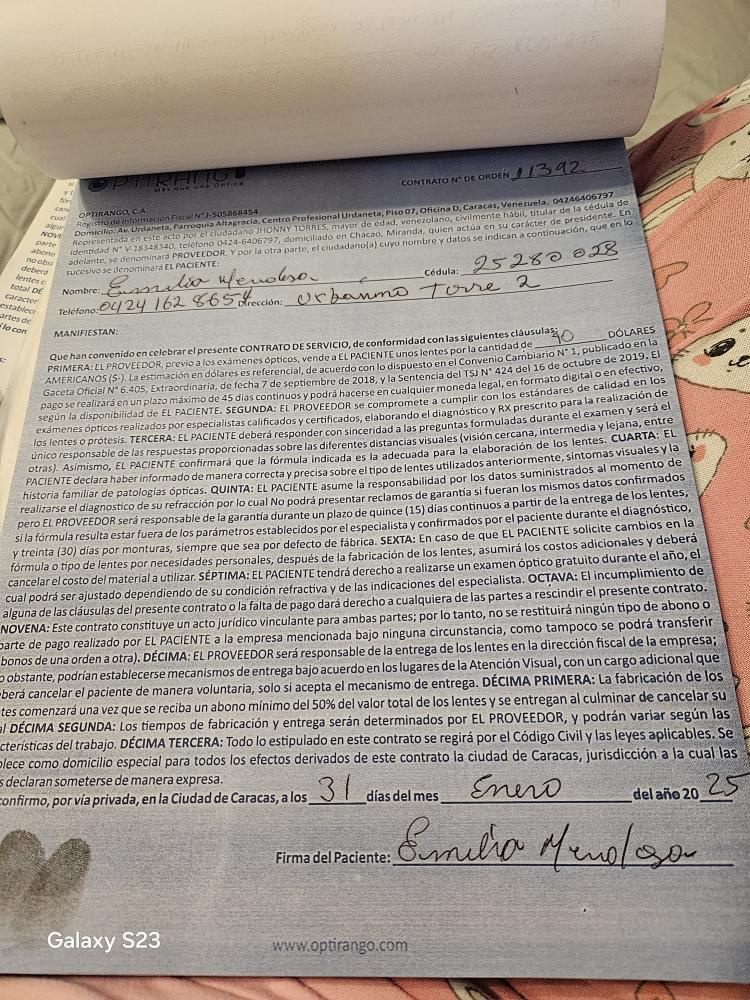 OPTIRANGO
Más que una Óptica
CONTRATO N° DE ORDEN 11392
OPTIRANGO, C.A.
Registro de Información Fiscal N° J-505868454
Domicilio: Av. Urdaneta, Parroquia Altagracia, Centro Profesional Urdaneta, Piso 07, Oficina D, Caracas, Venezuela. 04246406797
Representada en este acto por el ciudadano JHONNY TORRES, mayor de edad, venezolano, civilmente hábil, titular de la cédula de
Identidad N° V-18348340, teléfono 0424-6406797, domiciliado en Chacao, Miranda, quien actúa en su carácter de presidente. En
adelante, se denominará PROVEEDOR. Y por la otra parte, el ciudadano(a) cuyo nombre y datos se indican a continuación, que en lo
sucesivo se denominará EL PACIENTE:
Nombre: Emilia Mendoza Cédula: 25280028
Teléfono: 0424 162 8654 Dirección: Urbanmo Torre 2
MANIFIESTAN:
Que han convenido en celebrar el presente CONTRATO DE SERVICIO, de conformidad con las siguientes cláusulas:
PRIMERA: EL PROVEEDOR, previo a los exámenes ópticos, vende a EL PACIENTE unos lentes por la cantidad de 90 DÓLARES
AMERICANOS (S-). La estimación en dólares es referencial, de acuerdo con lo dispuesto en el Convenio Cambiario N° 1, publicado en la
Gaceta Oficial N° 6.405, Extraordinaria, de fecha 7 de septiembre de 2018, y la Sentencia del TSJ N° 424 del 16 de octubre de 2019. El
pago se realizará en un plazo máximo de 45 días continuos y podrá hacerse en cualquier moneda legal, en formato digital o en efectivo,
según la disponibilidad de EL PACIENTE. SEGUNDA: EL PROVEEDOR se compromete a cumplir con los estándares de calidad en los
exámenes ópticos realizados por especialistas calificados y certificados, elaborando el diagnóstico y RX prescrito para la realización de
los lentes o prótesis. TERCERA: EL PACIENTE deberá responder con sinceridad a las preguntas formuladas durante el examen y será el
único responsable de las respuestas proporcionadas sobre las diferentes distancias visuales (visión cercana, intermedia y lejana, entre
otras). Asimismo, EL PACIENTE confirmará que la fórmula indicada es la adecuada para la elaboración de los lentes. CUARTA: EL
PACIENTE declara haber informado de manera correcta y precisa sobre el tipo de lentes utilizados anteriormente, síntomas visuales y la
historia familiar de patologías ópticas. QUINTA: EL PACIENTE asume la responsabilidad por los datos suministrados al momento de
realizarse el diagnostico de su refracción por lo cual No podrá presentar reclamos de garantía si fueran los mismos datos confirmados
pero EL PROVEEDOR será responsable de la garantía durante un plazo de quince (15) días continuos a partir de la entrega de los lentes,
si la fórmula resulta estar fuera de los parámetros establecidos por el especialista y confirmados por el paciente durante el diagnóstico,
y treinta (30) días por monturas, siempre que sea por defecto de fábrica. SEXTA: En caso de que EL PACIENTE solicite cambios en la
fórmula o tipo de lentes por necesidades personales, después de la fabricación de los lentes, asumirá los costos adicionales y deberá
cancelar el costo del material a utilizar. SÉPTIMA: EL PACIENTE tendrá derecho a realizarse un examen óptico gratuito durante el año, el
cual podrá ser ajustado dependiendo de su condición refractiva y de las indicaciones del especialista. OCTAVA: El incumplimiento de
alguna de las cláusulas del presente contrato o la falta de pago dará derecho a cualquiera de las partes a rescindir el presente contrato.
NOVENA: Este contrato constituye un acto jurídico vinculante para ambas partes; por lo tanto, no se restituirá ningún tipo de abono o
parte de pago realizado por EL PACIENTE a la empresa mencionada bajo ninguna circunstancia, como tampoco se podrá transferir
bonos de una orden a otra). DÉCIMA: EL PROVEEDOR será responsable de la entrega de los lentes en la dirección fiscal de la empresa;
o obstante, podrían establecerse mecanismos de entrega bajo acuerdo en los lugares de la Atención Visual, con un cargo adicional que
berá cancelar el paciente de manera voluntaria, solo si acepta el mecanismo de entrega. DÉCIMA PRIMERA: La fabricación de los
tes comenzará una vez que se reciba un abono mínimo del 50% del valor total de los lentes y se entregan al culminar de cancelar su
al DÉCIMA SEGUNDA: Los tiempos de fabricación y entrega serán determinados por EL PROVEEDOR, y podrán variar según las
cterísticas del trabajo. DÉCIMA TERCERA: Todo lo estipulado en este contrato se regirá por el Código Civil y las leyes aplicables. Se
lece como domicilio especial para todos los efectos derivados de este contrato la ciudad de Caracas, jurisdicción a la cual las
s declaran someterse de manera expresa.
confirmo, por vía privada, en la Ciudad de Caracas, a los 31 días del mes Enero del año 2025
Firma del Paciente: Emilia Mendoza
www.optirango.com
Galaxy S23